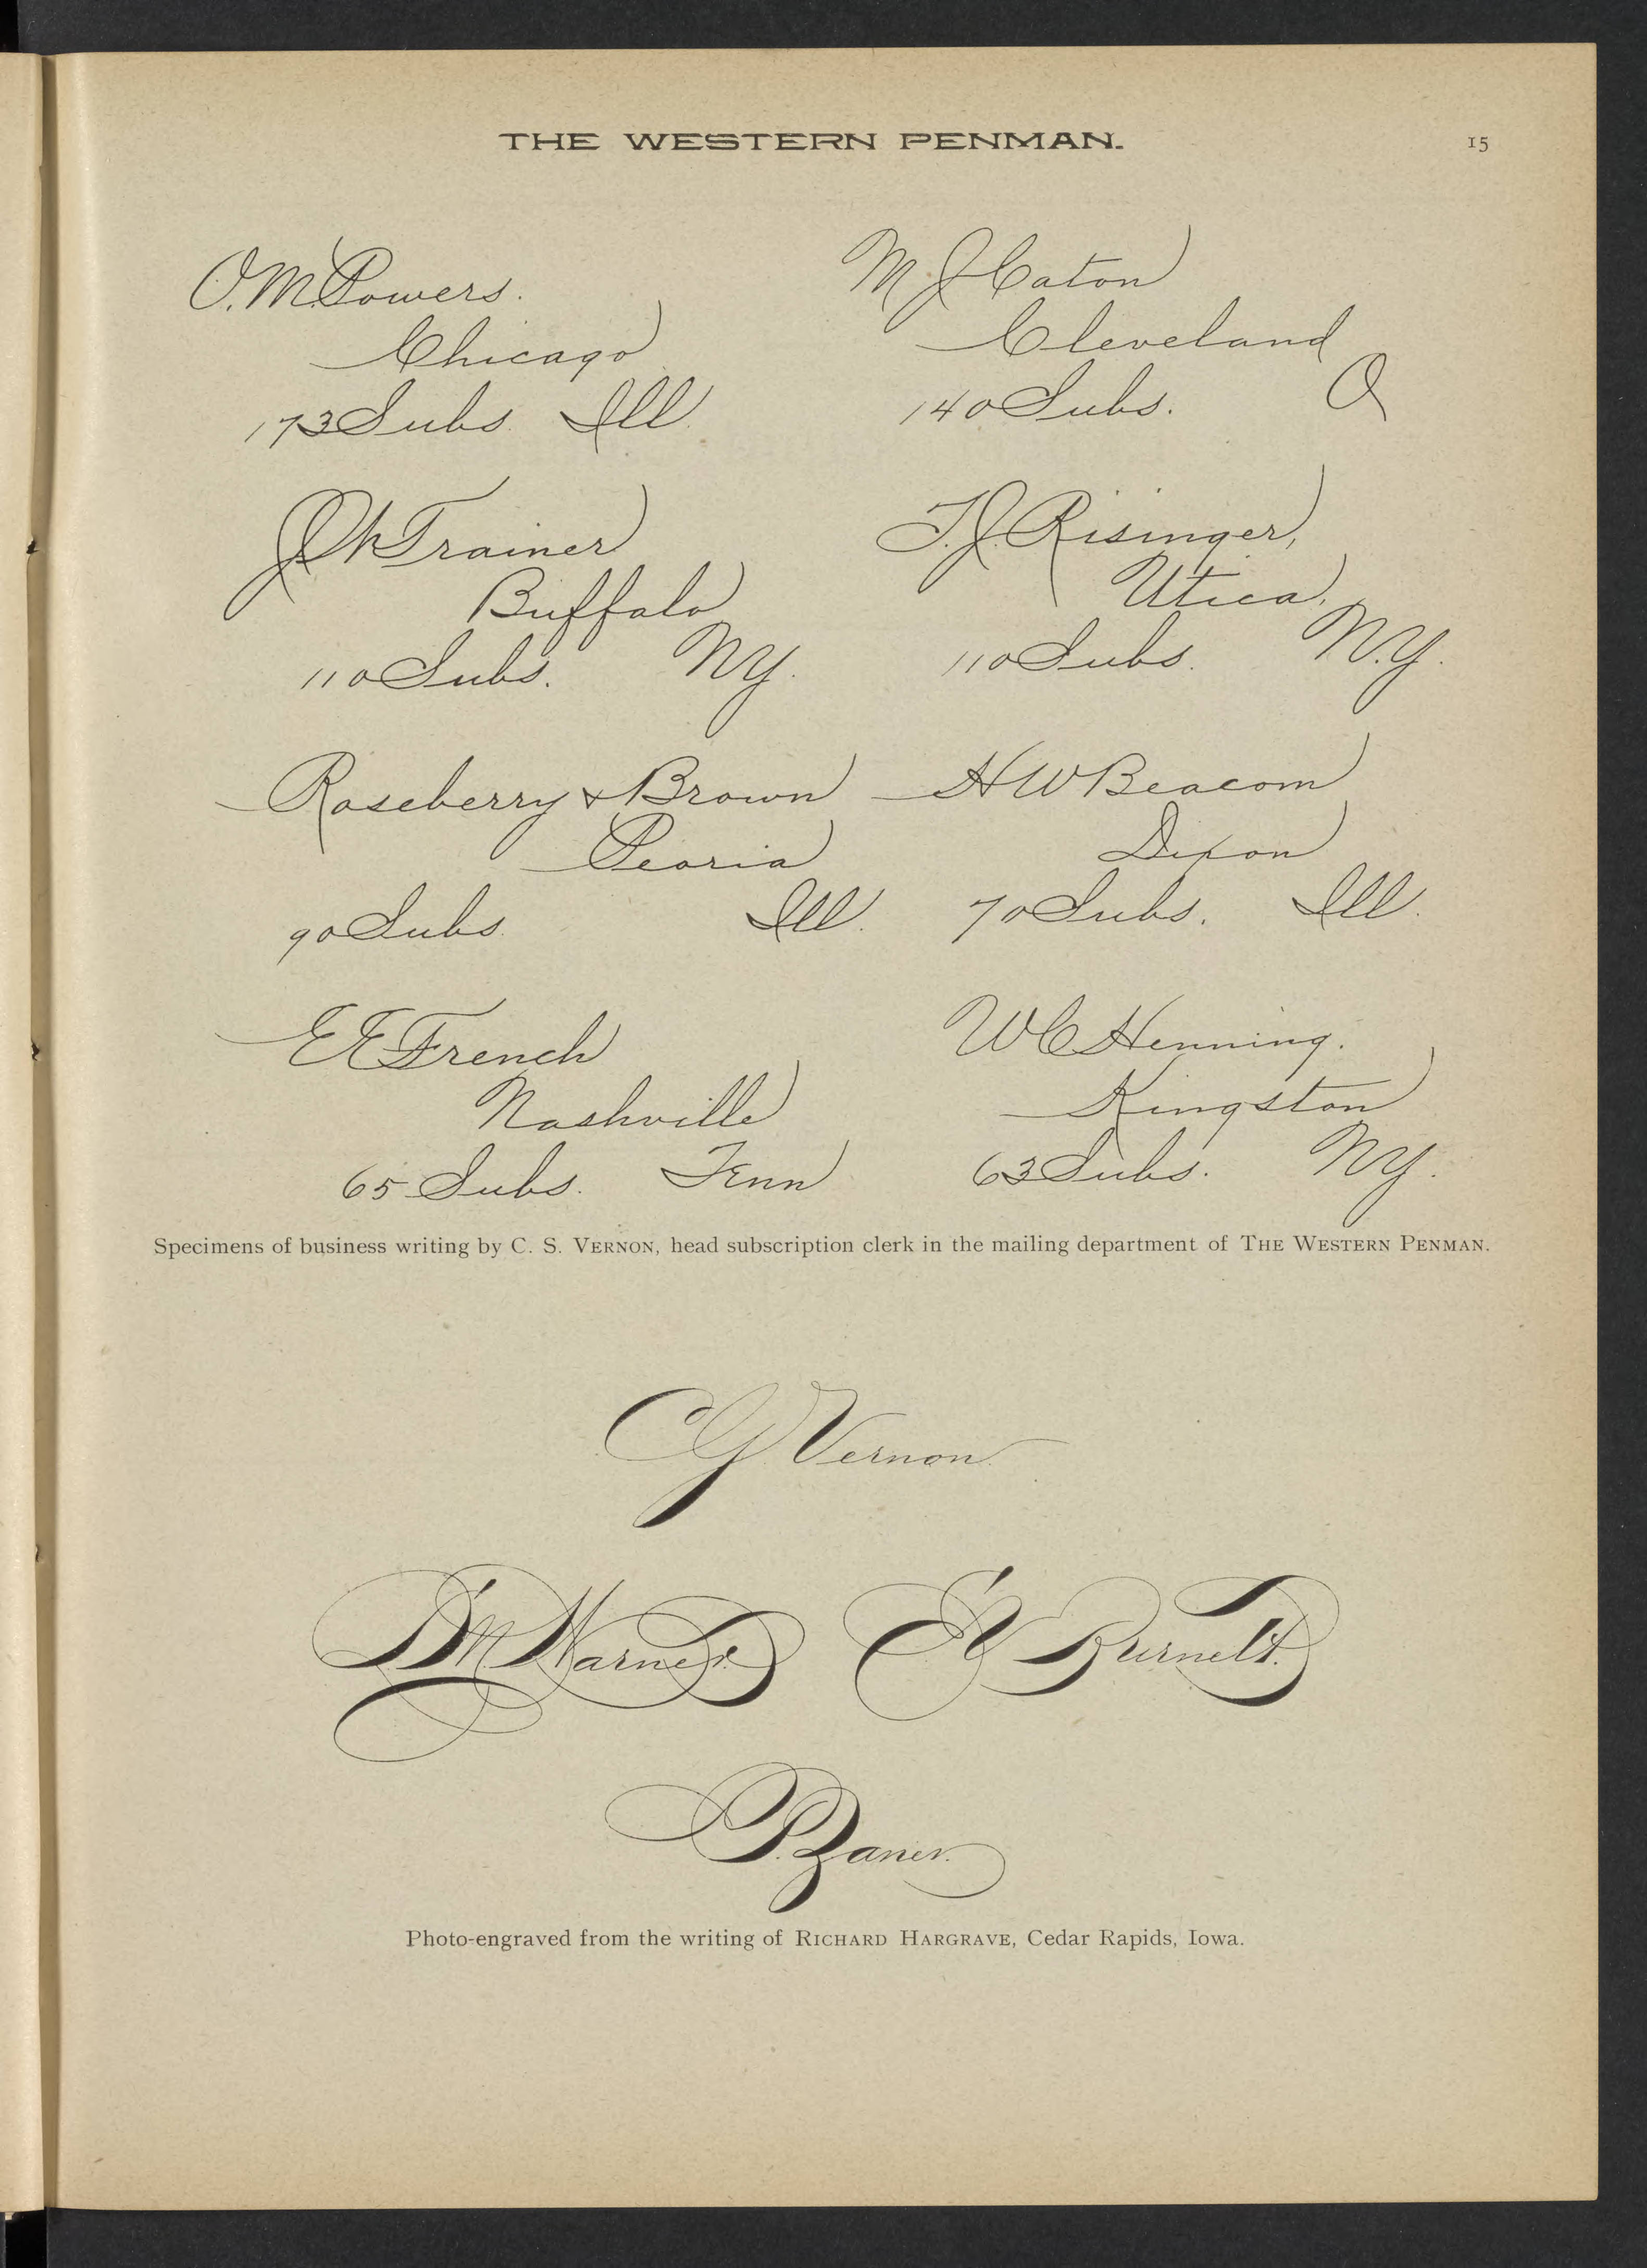 THE WESTERN PENMAN.
15
O.M. Powers.
Chicago
173 Subs. Ill.
M J Caton
Cleveland
140 Subs. O
Trainer
Buffalo
110 Subs. NY.
T.J. Risinger,
Utica,
110 Subs. N.Y.
Roseberry & Brown
Peoria
90 Subs. Ill.
H W Beacom
Dixon
70 Subs. Ill.
E E French
Nashville
65 Subs. Tenn
W C Henning.
Kingston
63 Subs. NY.
Specimens of business writing by C. S. VERNON, head subscription clerk in the mailing department of THE WESTERN PENMAN.
Vernon.
Warner.
Burnett.
Zaner.
Photo-engraved from the writing of RICHARD HARGRAVE, Cedar Rapids, Iowa.